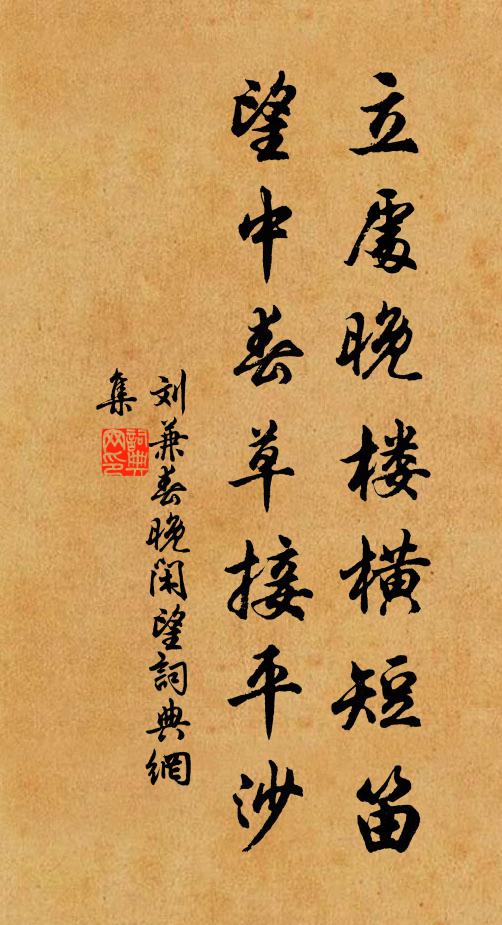 立處晚楼橫短笛
望中春草接平沙
刘兼春晚闲望詞典網
集
詞典
网印